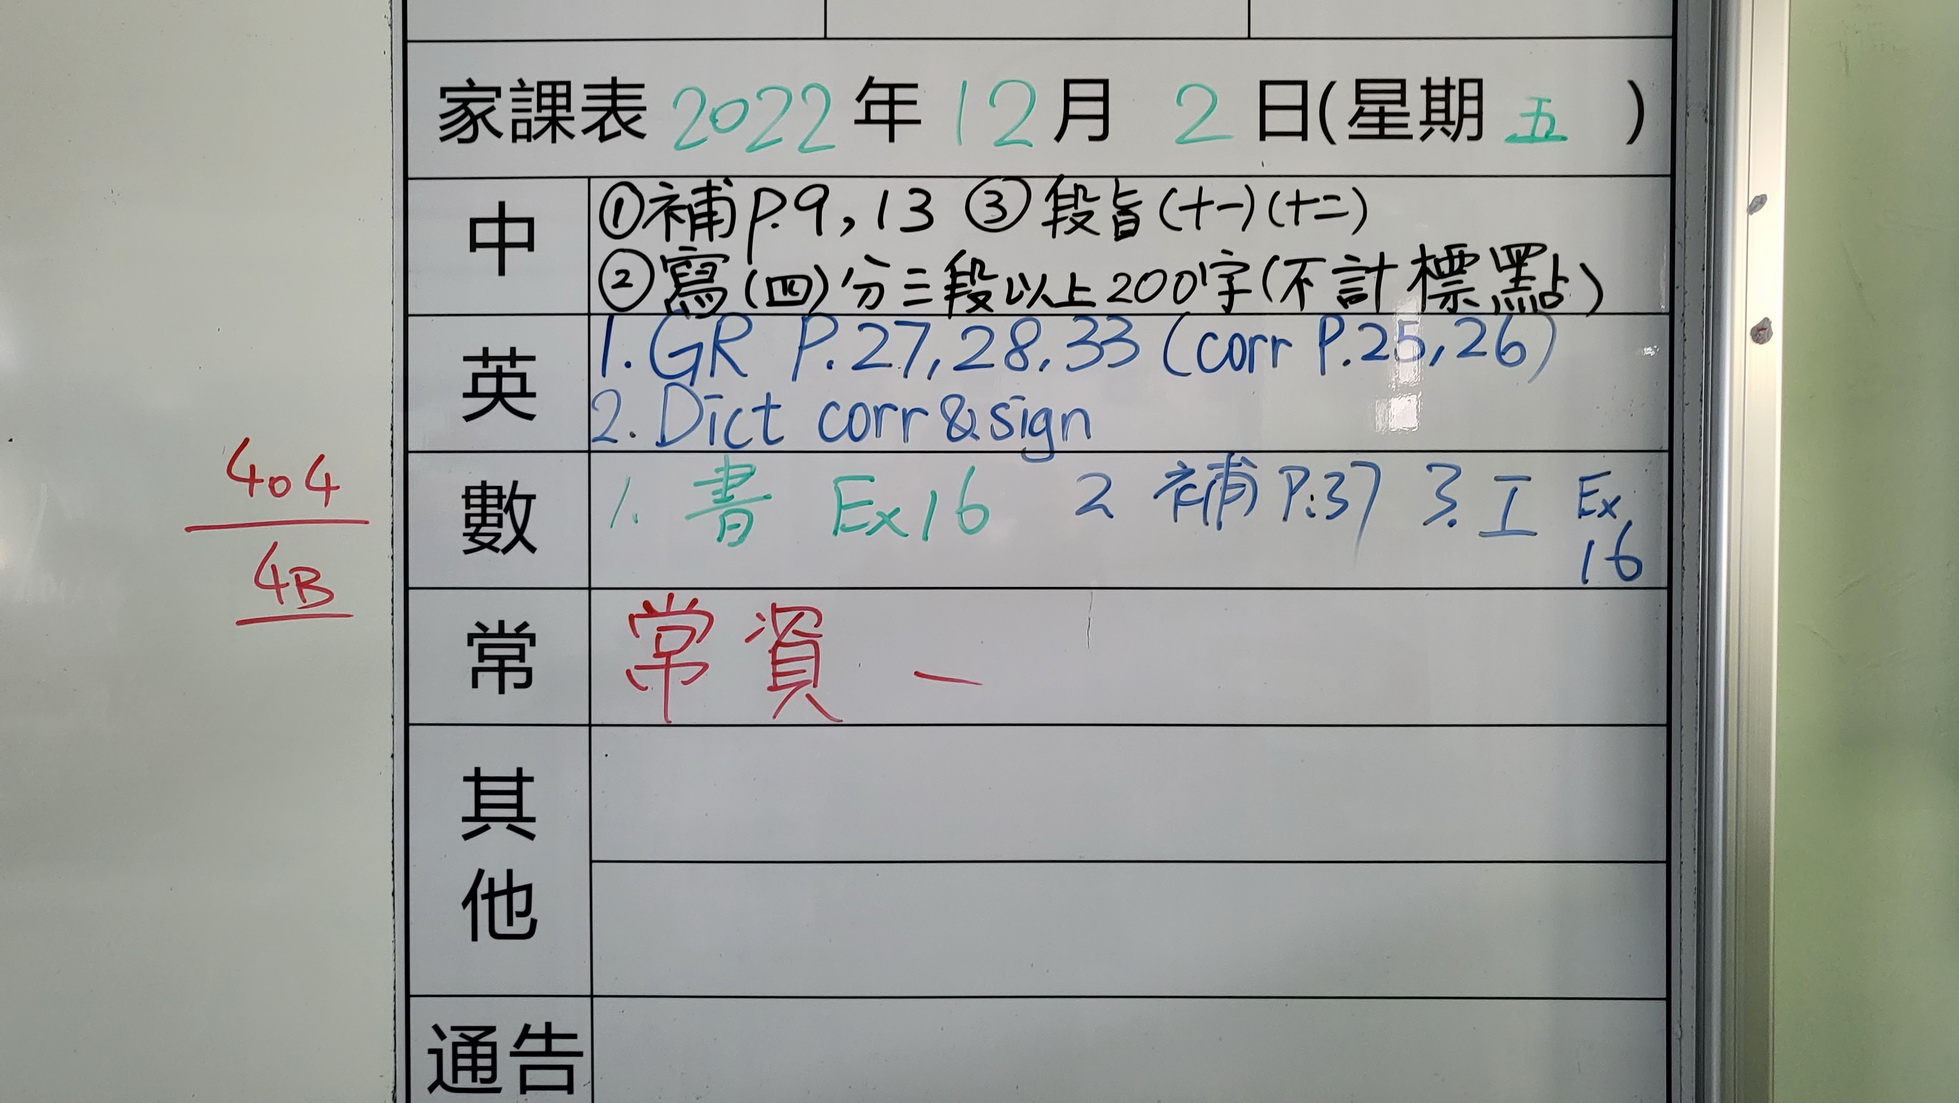 家課表 2022年 12月 2日(星期五)
中
①補P.9,13 ③段旨(十一)(十二)
②寫(四)分三段以上200字(不計標點)
英
1. GR P.27,28,33 (corr P.25,26)
2. Dict corr & sign
數
1. 書 Ex16 2 補P.37 3. 工 Ex
16
常
常資 一
其
他
通告
404
4B